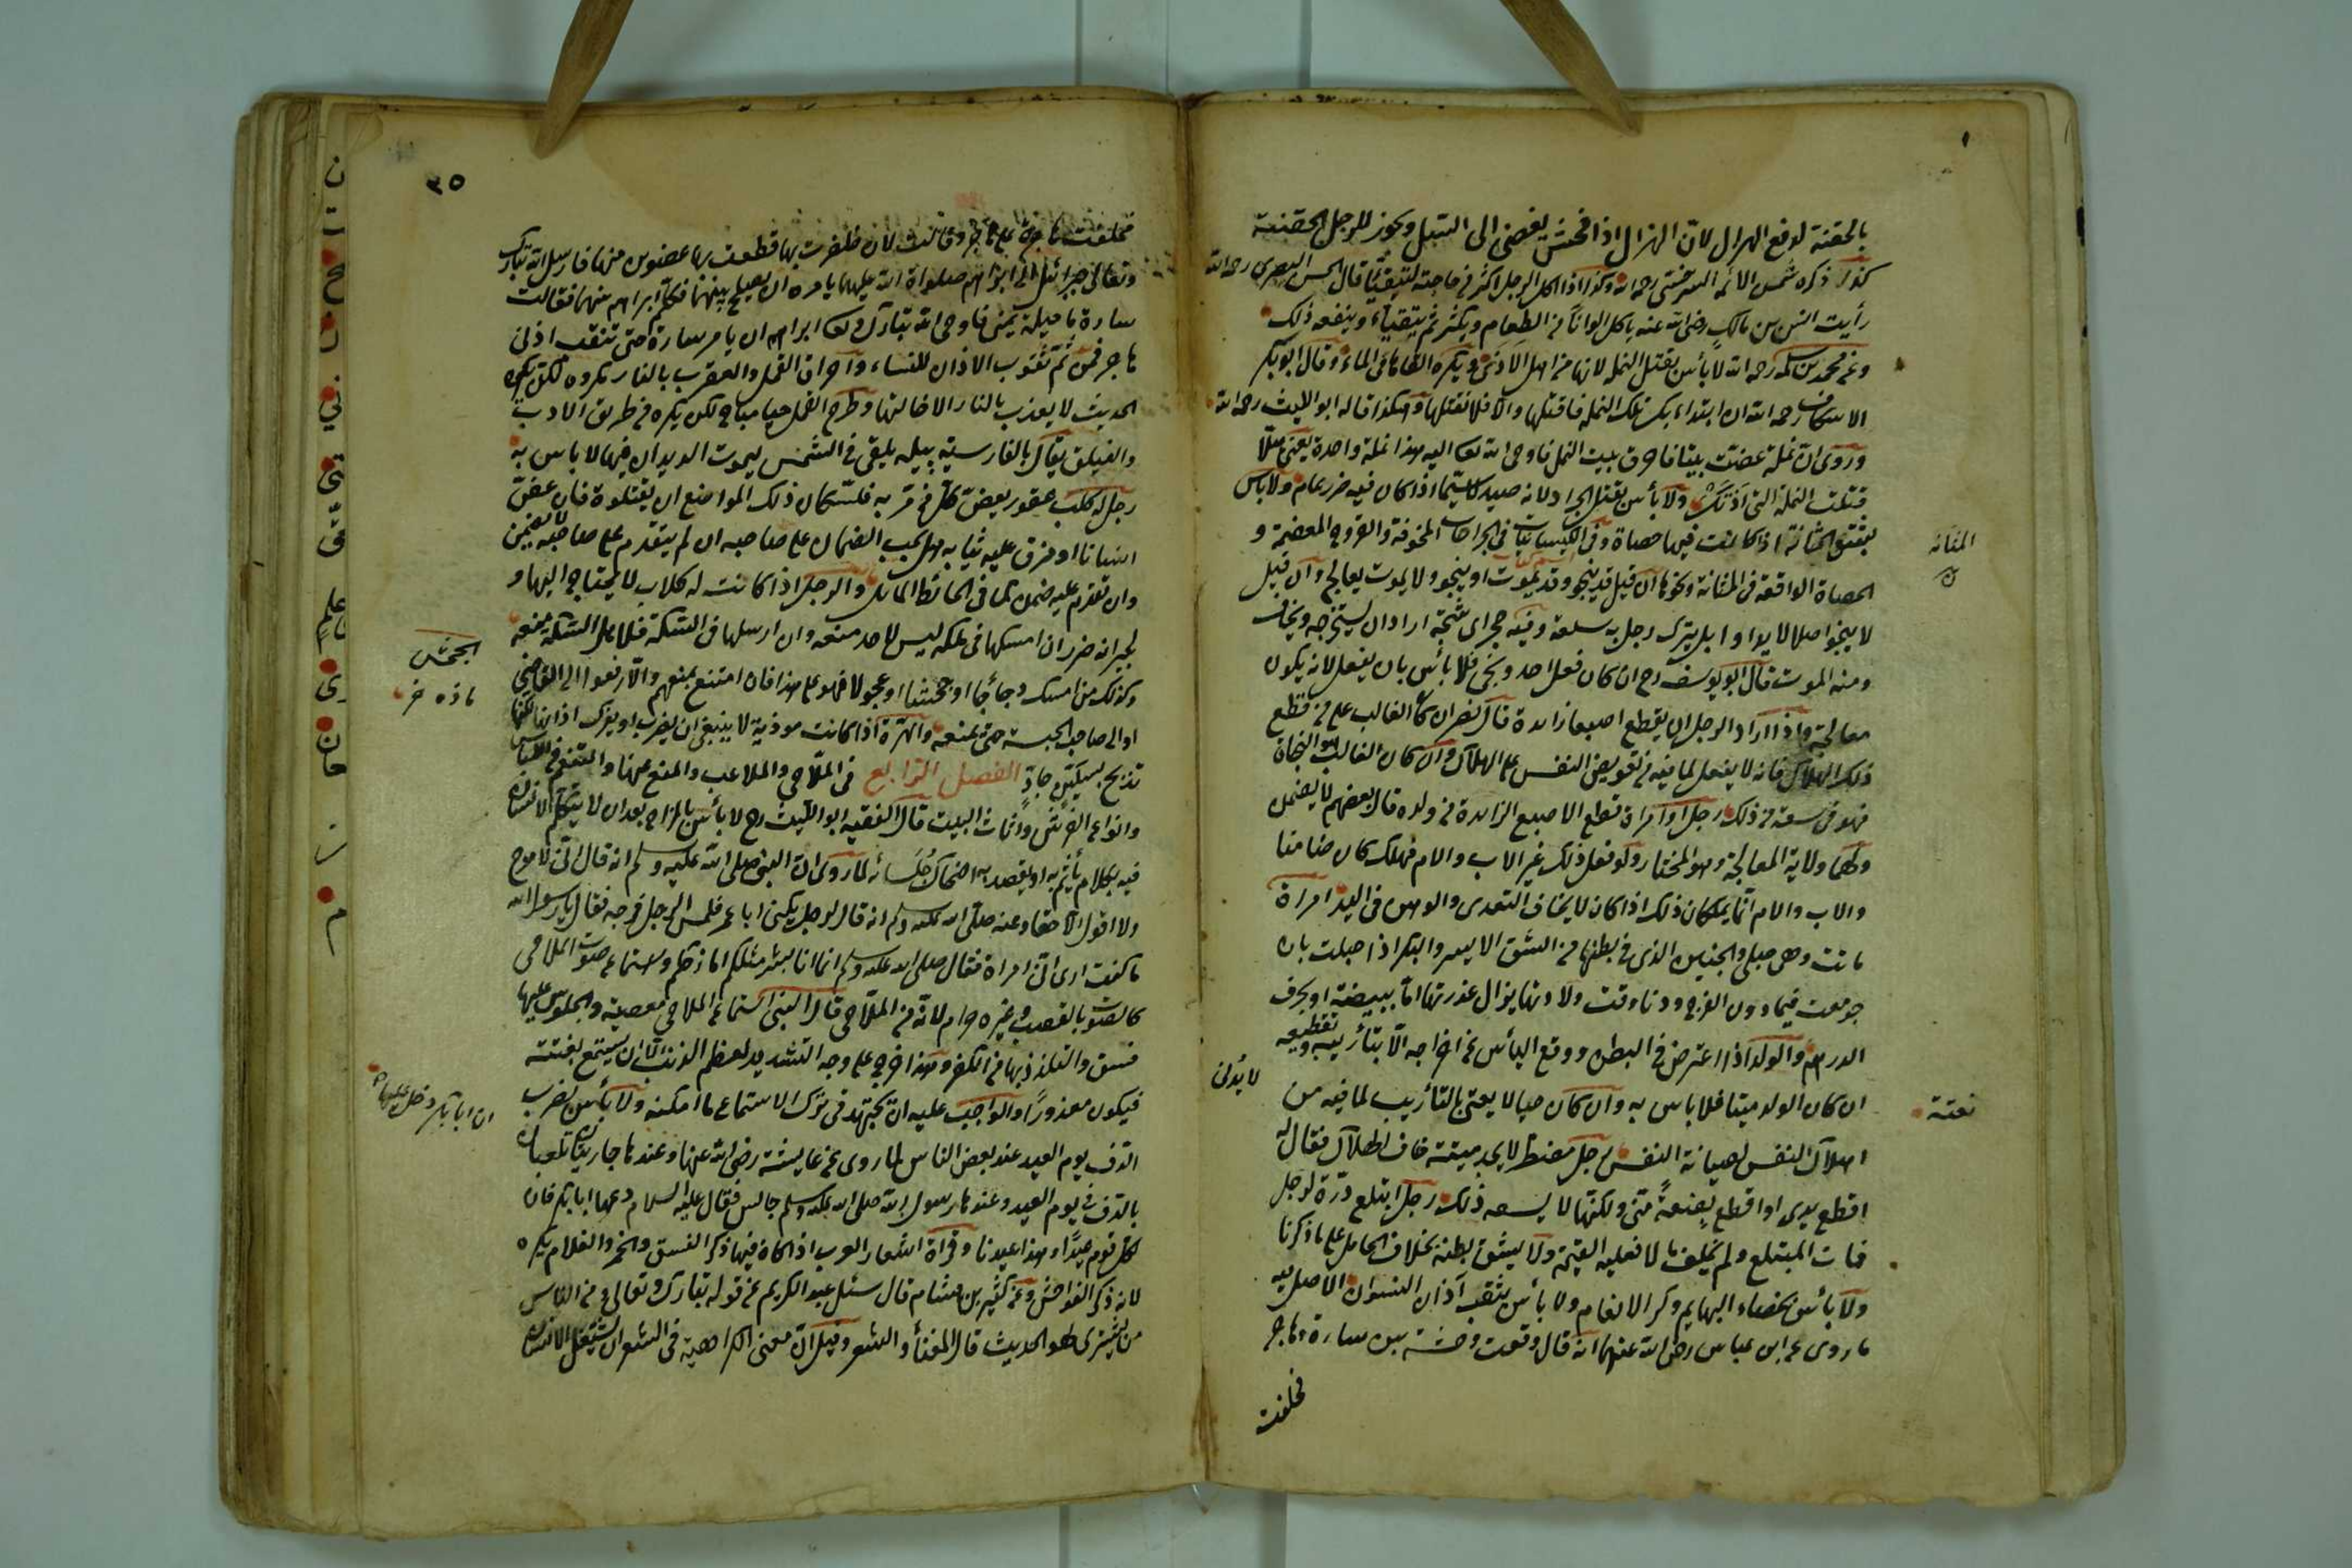 بالحقنة لدفع الهزال لانّ الهزال اذا فحش يفضى الى السل ويجوز للرجل الحقنة
كذا ذكره شمس الائمه السرخسى رحمه الله وكذا اذا اكل الرجل اكثر من حاجته ليتقيّأ قال الحسن البصرى رحمه الله
رأيت انس بن مالك رضى الله عنه ياكل الواناً من الطعام ويكثر ثم يتقيأ وينفعه ذلك
وعن محمد بن سلمه رحمه الله لا بأس بقتل النمله لانها من اهل الاذى ويكره القاءها فى الماء وقال ابو بكر
الاسكاف رحمه الله ان ابتداءتك تلك النمله فاقتلها والا فلا تقتلها وهكذا قاله ابو الليث رحمه الله
وروى ان نملة عضت نبيا فاحرق بيت النمل فاوحى الله تعا اليه هذا نملة واحدة يعنى هلّا
قتلت النملة التى آذتك ولا بأس بقتل الجراد لانه صيد لا سيّما اذا كان فيه ضرر عام ولا باس
بشق المثانة اذا كانت فيها حصاة وفى الكيسانيات فى الجراحات المخوفة والقروح العظيمة و
الحصاة الواقعة فى المثانة ونحوها ان قيل قد ينجو وقد يموت او ينجو ولا يموت يعالج وان قيل
لا ينجو اصلا لا يداوا بل يترك رجل به سلعة وفيه حجر اى شجة اراد ان يستخرجه ويخاف
ومنه الموت قال ابو يوسف رح ان كان فعل احد ونجى فلا بأس بان يفعل لانه يكون
معالجة واذا اراد الرجل ان يقطع اصبعا زايدة قال نصر ان كان الغالب على من قطع
ذلك الهلاك فانه لا يفعل لما فيه من تعريض النفس على الهلاك وان كان الغالب هو النجاة
فهو فى سعة من ذلك رجل او امراة قطع الاصبع الزايدة من ولده قال بعضهم لا يضمن
ولهما ولاية المعالجة وهو المختار ولو فعل ذلك غير الاب والام فهلك كان ضامنا
والاب والام انما يملكان ذلك اذا كان لا يخاف التعدى والوهن فى اليد امراة
ماتت وهى حبلى والجنين الذى فى بطنها من الشق الايسر والبكر اذا حبلت بان
جومعت فيما دون الفرج ودنا وقت ولادتها يزال عذرتها امّا ببيضة او بحرف
الدرهم والولد اذا اعترض فى البطن ووقع اليأس عن اخراجه الّا بتأريبه وتقطيعه
ان كان الولد ميتا فلا باس به وان كان حيا لا يعتى بالتأريب لما فيه من
اهلاك النفس لصيانة النفس رجل مضطر لا يجد ميتة خاف الهلاك فقال له
اقطع يدى او اقطع بضعةً منّى ولكنّها لا يسعه ذلك رجل ابتلع درّة لرجل
فمات المبتلع ولم يخلف مالا فعليه القيمة ولا يشق بطنه بخلاف الحامل على ما ذكرنا
ولا بأس بخصاء البهايم وكى الانعام ولا بأس بثقب آذان النسوان الاصل فيه
ما روى عن ابن عباس رضى الله عنهما انه قال وقعت وحشة بين سارة وهاجر
فحلفت
المثانه
نعتة
لا يؤذن
٣٥
وتعالى جبرائيل الى ابراهيم صلوات الله عليهما يامره ان يصلح بينهما فكلم ابراهيم منهما فقالت
سارة ما حيلة يمينى فاوحى الله تبارك وتعا ابراهيم ان يامر سارة حتى تثقب اذنى
هاجر فمن ثَمّ ثقوب الاذان للنساء واحراق القمل والعقرب بالنار مكروه
الحديث لا يعذب بالنار الا خالقها وطرح القمل حيا مباح لكن يكره من طريق الادب
والفيلق يقال بالفارسية پيله يلقى فى الشمس ليموت الديدان فيها لا باس به
رجل له كلب عقور يعض كل من مر به فلسكان ذلك المواضع ان يقتلوه فان عض
انسانا او مزق عليه ثيابه هل يجب الضمان على صاحبه ان لم يتقدم على صاحبه لا يضمن
وان تقدم عليه ضمن كما فى الحائط المائل والرجل اذا كانت له كلاب لا يحتاج اليها و
لجيرانه ضرر ان امسكها فى ملكه ليس لاحد منعه وان ارسلها فى السكة فلاهل السكة منعه
وكذلك من امسك دجاجا او جحشا او عجولا فهو على هذا فان امتنع بمنعهم والّا رفعوا الى القاضى
او الى صاحب الحسبة حتى يمنعه والهرّة اذا كانت موذية لا ينبغى ان يضرب او يعرك اذانها لكنّها
تذبح بسكين حادّ الفصل الرابع فى الملاهى والملاعب والمنع عنها والتنعم فى اللباس
وانواع الفرش واثاث البيت قال الفقيه ابو الليث رح لا بأس بالمزاح بعد ان لا يتكلم الانسان
فيه بكلام يأثم به او يقصد به اضحاك جلسائه لما روى ان النبى صلى الله عليه وسلم انه قال انّى لا مزح
ولا اقول الّا حقا وعنه صلى الله عليه وسلم انه قال لرجل يكنى ابا عمر فلمس الرجل فرجه فقال يا رسول الله
ما كنت ارى انّى امراة فقال صلى الله عليه وسلم انما انا بشر مثلكم امازحكم واستماع صوت الملاهى
كالضرب بالقصب وغيره حرام لانّه من الملاهى قال النبى استماع الملاهى معصية والجلوس عليها
فسق والتلذذ بها من الكفر وهذا خرج على وجه التشديد لعظم الذنب الا ان يسمع بغتة
فيكون معذورًا والواجب عليه ان يجتهد فى ترك الاستماع ما امكنه ولا بأس بضرب
الدف يوم العيد عند بعض الناس لما روى عن عايشة رضى الله عنها وعندها جاريتان تلعبان
بالدف فى يوم العيد وعندها رسول الله صلى الله عليه وسلم جالس فقال عليه السلام دعهما ابا بكر فان
لكل قوم عيدًا وهذا عيدنا وقراة اشعار العرب اذا كان فيها ذكر الفسق والخمر والغلام يكره
لانه ذكر الفواحش وعن كثير بن هشام قال سئل عبد الكريم عن قوله تبارك وتعالى ومن الناس
من يشترى لهو الحديث قال الغناء والشعر وقيل ان معنى الكراهية فى الشعر ان يشتغل الانسان
الجحش
ماده خر
ان ابا بكر دخل عليها